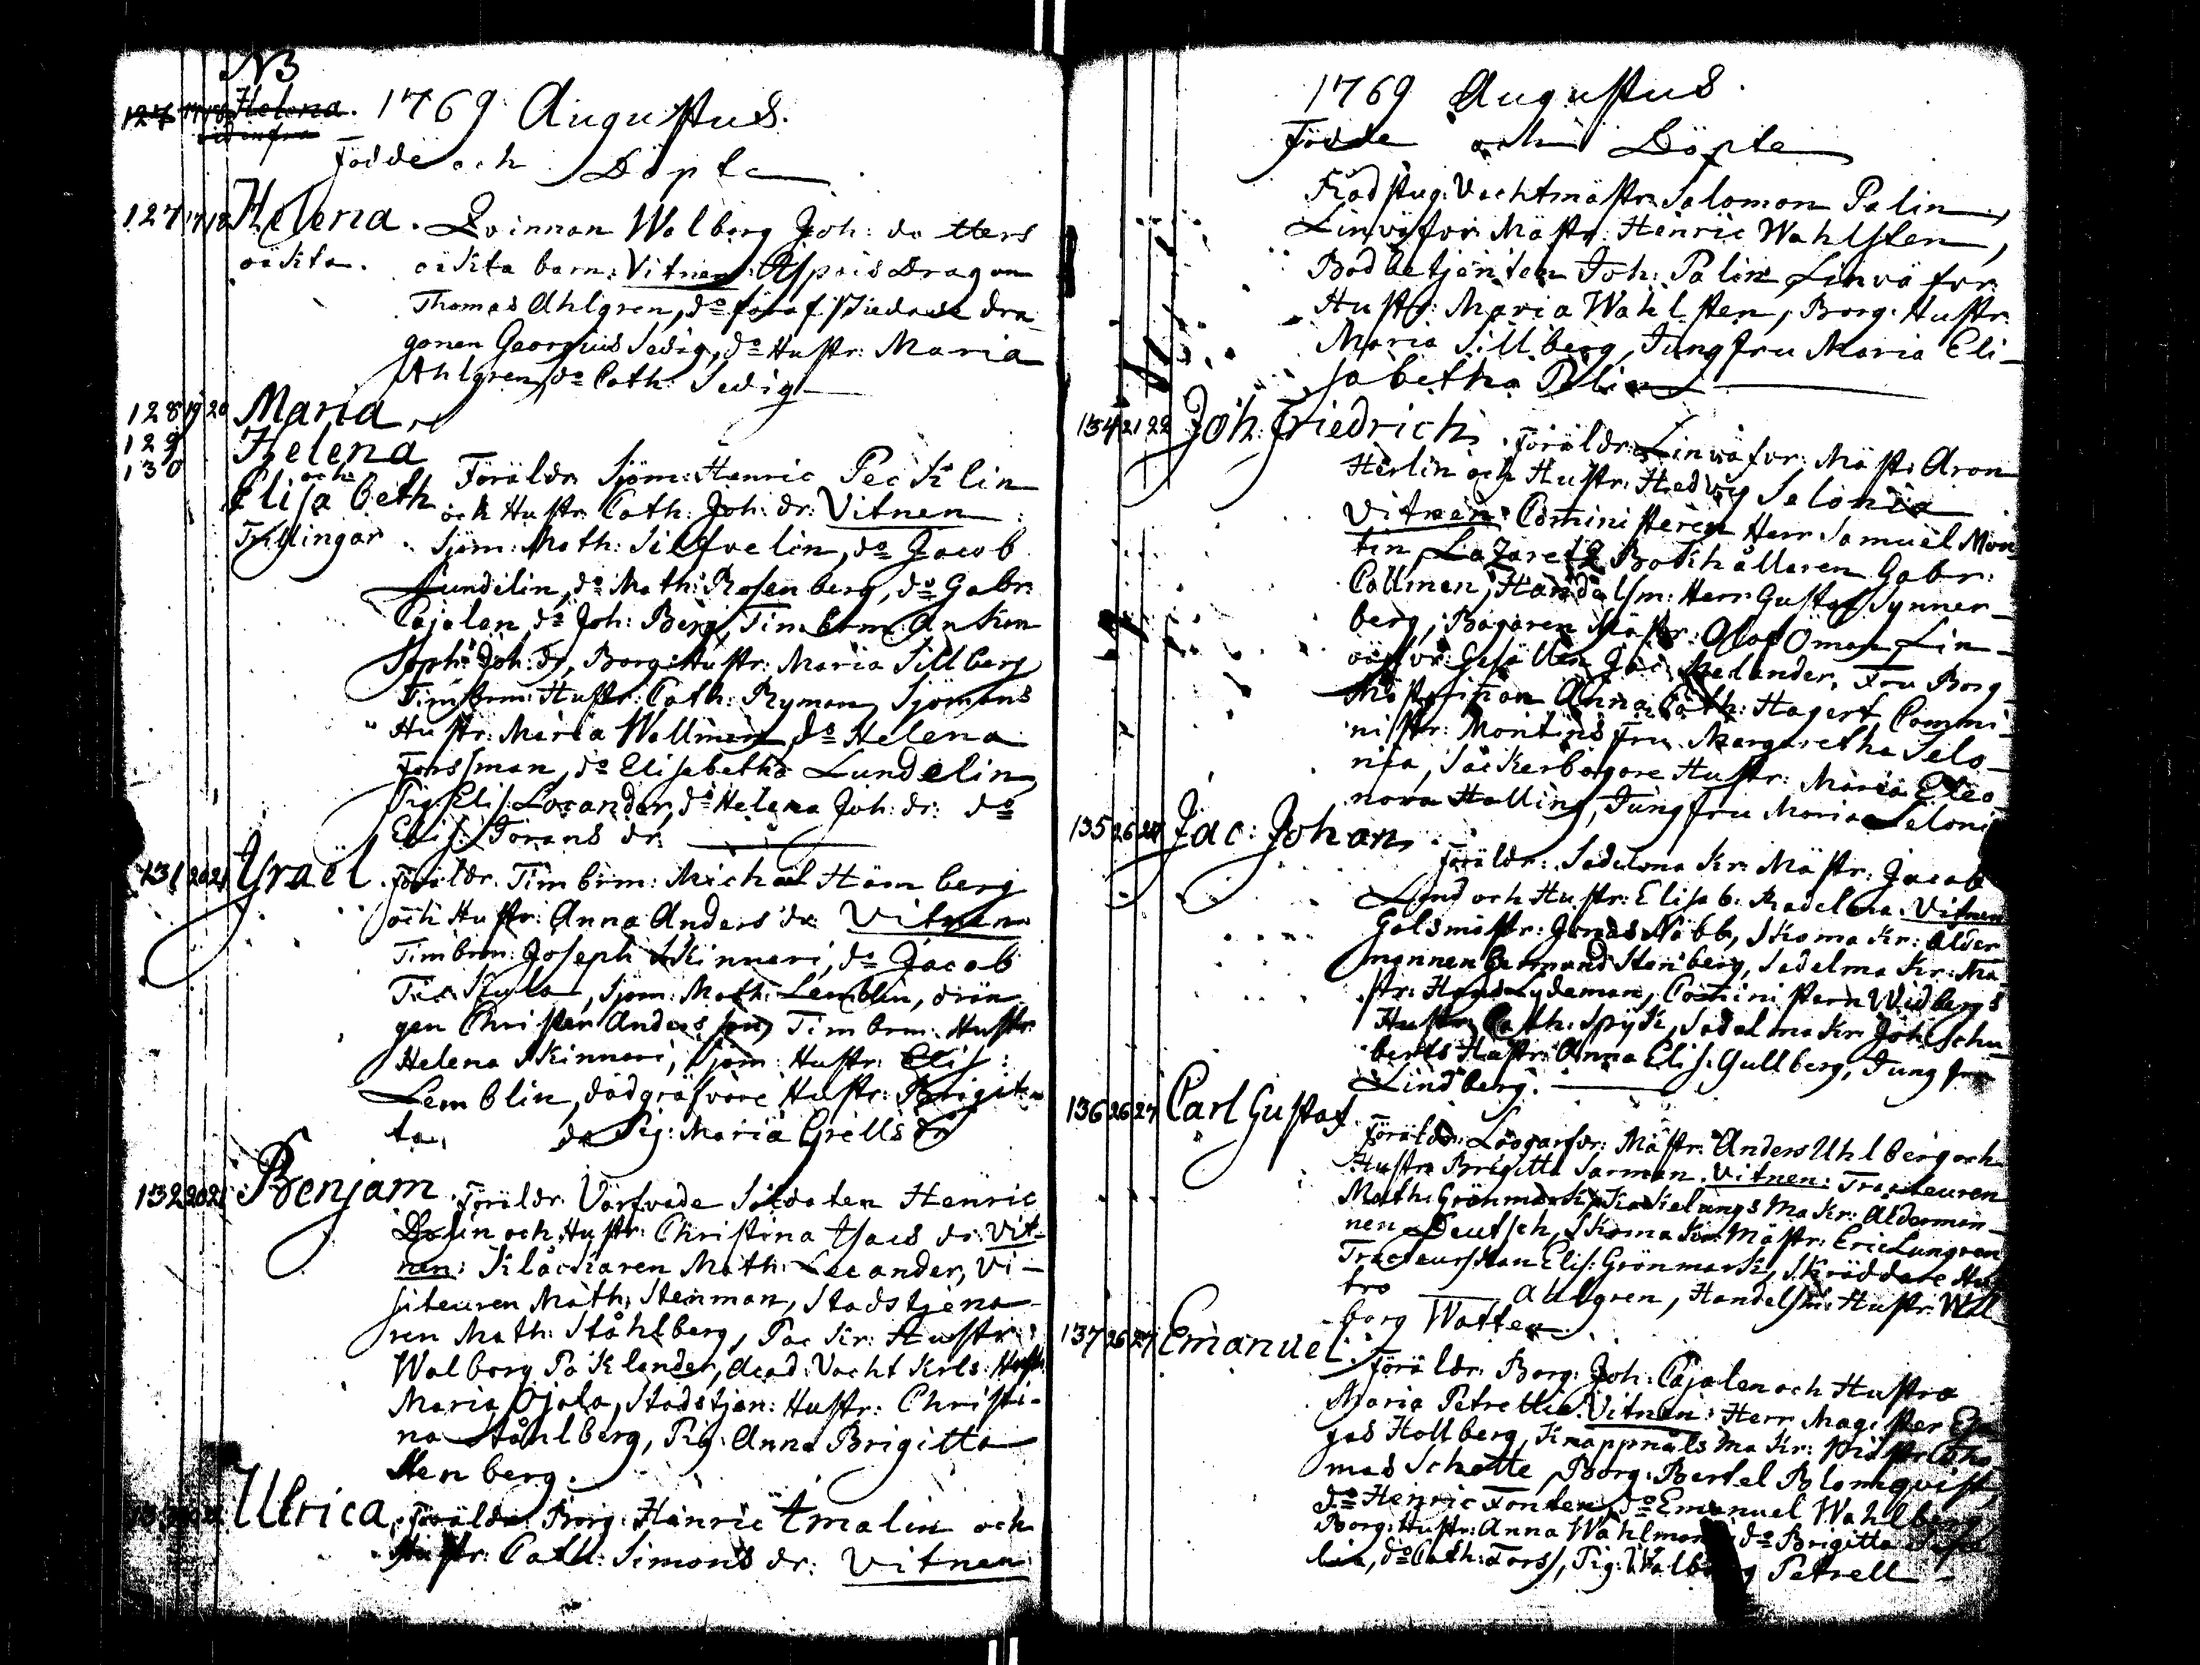 N3
127 17 18 Helena. 1769 Augustus.
vid infra
Födde och Döpte
127 17 18 Helena. Qvinnan Walborg Joh: dotters
oäkta. oäkta barn: Vitnen: Dragon
Thomas Ahlgren, do dra-
gonen Georgius Sedig, do Hustr: Maria
Ahlgren, do Cath: Sedig
128 19 20 Maria
129 Helena
130 och Föräldr: Sjöm: Henric Pecklin
Elisabeth och Hustr: Cath: Joh: dr: Vitnen:
Trillingar. Sjöm: Math: Silfvelin, do Jacob
Lundelin, do Math: Rosenberg, do Gabr:
Cajalen, do Joh: Berg, Timbrm:
Joh: dr, Borg: Hustr: Maria Sillberg
Timbrm: Hustr: Cath: Ryman, Sjömans
Hustr: Maria Wallman, do Helena
Forssman, do Elisabetha Lundelin,
Pig: Elis: Locander, do Helena Joh: dr: do
Elis: Jörans dr.
131 20 21 Israël. Föräldr: Timbrm: Michael Hämberg
och Hustr: Anna Anders dr: Vitnen
Timbrm: Joseph Skinnari, do Jacob
Sjöm: Math: Lemblin, drän-
gen Christer Andersson, Timbrm: Hustr:
Helena Skinnari, Sjöm: Hustr: Elis:
Lemblin, dödgräfvare Hustr: Brigit-
ta, dr Pig: Maria Grells dr
132 20 21 Benjam. Föräldr: Värfvade Soldaten Henric
och Hustr: Christina Isacs dr: Vit-
nen: Klåckaren Math: Lecander, Vi-
siteuren Math: Stenman, Stadstjena-
ren Math: Ståhlberg, Hustr:
Walborg Päklander, Acad: Vacht Krls: Hustr:
Maria Ojala, Stadstjen: Hustr: Christi-
na Ståhlberg, Pig: Anna Brigitta
Stenberg.
Ulrica. Föräldr: Borg: Henric Amalin och
Hustr: Cath: Simons dr: Vitnen
1769 Augustus.
Födde och Döpte
Rådstug: Vachtmästr: Salomon Palin,
Linväfvr: Mästr: Henric Wahlsten,
Bodbetjenten Joh: Palin Linväfvr:
Hustr: Maria Wahlsten, Borg: Hustr:
Maria Sillberg, Jungfru Maria Eli-
sabetha Palin
134 21 22 Joh: Friedrich. Föräldr: Linväfvr: Mäst: Aron
Herlin och Hustr: Hedvig Selonia
Vitnen: Comministeren Herr Samuel Mon-
tin, Lazaretz Bokhållaren Gabr:
Callmen, Handelsm: Herr Gustaf Synner-
berg, Bagaren Mästr: Olof Öman, Lin-
väfvr: Gesällen Melander, Fru Borg-
Mästarinnan Anna Cath: Hagert, Commi-
nistr: Montins Fru Margaretha Selo-
nia, Såckerbagare Hustr: Maria Eleo-
nora Halling, Jungfru Maria Seloni
135 26 27 Jac: Johan. Föräldr: Sadelmakr: Mästr: Jacob
Lind och Hustr: Elisab: Radelma. Vitnen
Golsmästr: Jonas Nobb, Skomakr: Ålder-
mannen Stenberg, Sadelmakr: Mä-
str: Hans Lydeman, Comministern Widbergs
Hustr: Cath: Spÿk, Sadelmakr: Joh: Schu-
berts Hustr: Anna Elis: Gullberg, Jungfru
Lindberg.
136 26 27 Carl Gustaf. Föräldr: Mästr: Anders Uhlberg och
Hustru Brigitta Sarman. Vitnen: Tracteuren
Math: Grönmark, Kakelungs Makr: Ålderman-
nen Deutsch, Skomakr: Mästr: Eric Lungren
Tracteurskan Elis: Grönmark, Skräddare Hus-
tro Ahlgren, Handelsm: Hustr: Wal-
borg Watten.
137 26 27 Emanuel. Föräldr: Borg: Joh: Cajalen och Hustro
Maria Petrellia. Vitnen: Herr Magister
Hollberg, Knappnåls Makr: Mästr: Tho-
mas Schette, Borg: Bertel Blomqvist,
do Henric Fonten, do Emanuel Wahlberg
Borg: Hustr: Anna Wahlman, do Brigitta
do Cath: Forss, Pig: Walborg Petrell